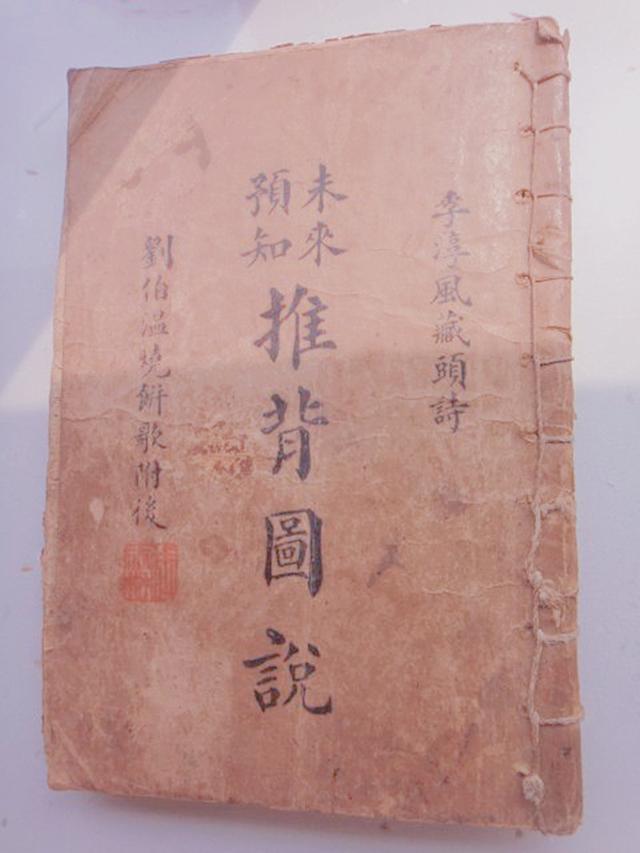 李淳風藏頭詩
未來
預知
推背圖說
劉伯温燒餅歌附後